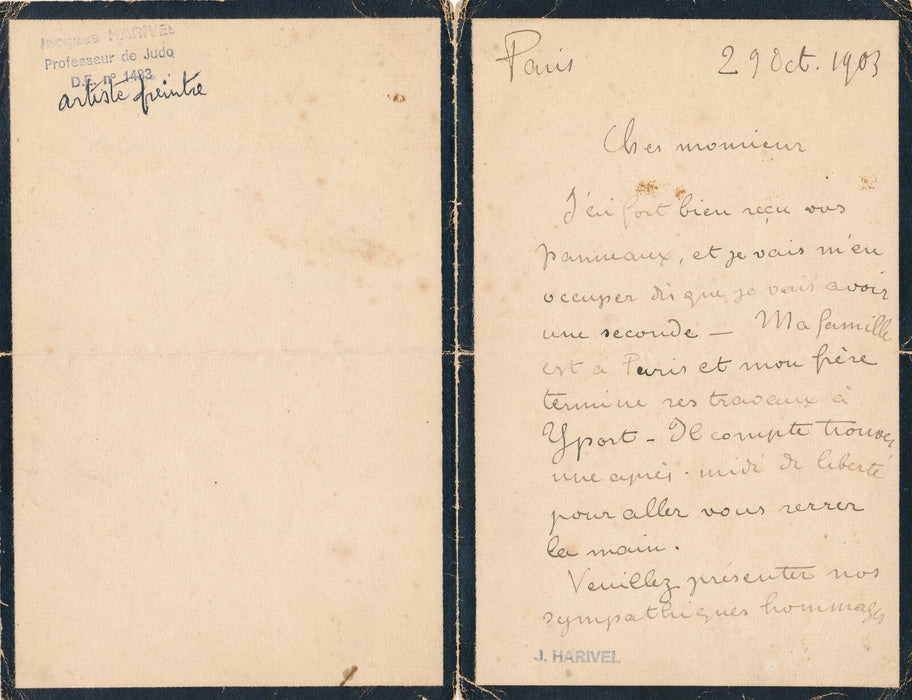 Jacques HARIVEL
Professeur de Judo
D.E. n° 1483
artiste peintre
Paris 29 Oct. 1903
Cher monsieur
J'ai fort bien reçu vos
panneaux, et je vais m'en
occuper dès que je vais avoir
une seconde — Ma famille
est à Paris et mon frère
termine ses travaux à
Yport - Il compte trouver
une après-midi de liberté
pour aller vous serrer
la main.
Veuillez présenter nos
sympathiques hommages
J. HARIVEL